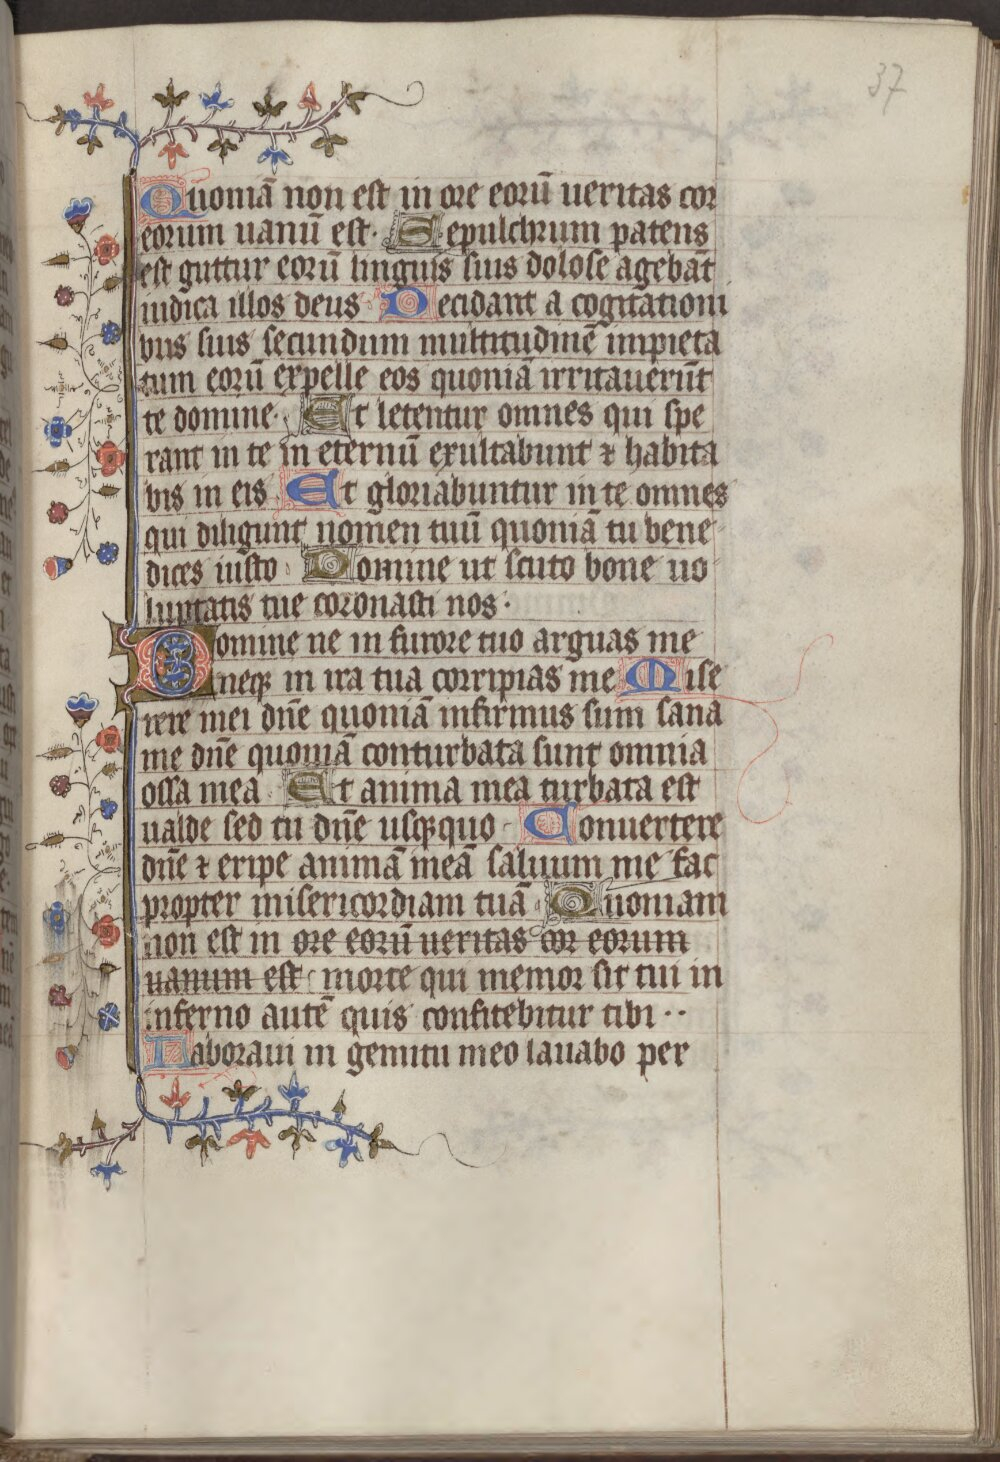 37
Quoniā non est in ore eorū ueritas cor
eorum uanū est· Sepulchrum patens
est guttur eorū linguis suis dolose agebāt
iudica illos deus Decidant a cogitationi
bus suis secundum multitudinē impieta
tum eorū expelle eos quoniā irritauerūt
te domine· Et letentur omnes qui spe
rant in te in eternū exultabunt ⁊ habita
bis in eis Et gloriabuntur in te omnes
qui diligunt nomen tuū quoniā tu bene
dices iusto Domine ut scuto bone uo
luptatis tue coronasti nos·
Domine ne in furore tuo arguas me
neqꝫ in ira tua corripias me Mise
rere mei dn̄e quoniā infirmus sum sana
me dn̄e quoniā conturbata sunt omnia
ossa mea Et anima mea turbata est
ualde sed tu dn̄e usqꝫquo Conuertere
dn̄e ⁊ eripe animā meā saluum me fac
propter misericordiam tuā· Quoniam
non est in ore eorū ueritas cor eorum
uanum est morte qui memor sit tui in
inferno autē quis confitebitur tibi··
Laboraui in gemitu meo lauabo per